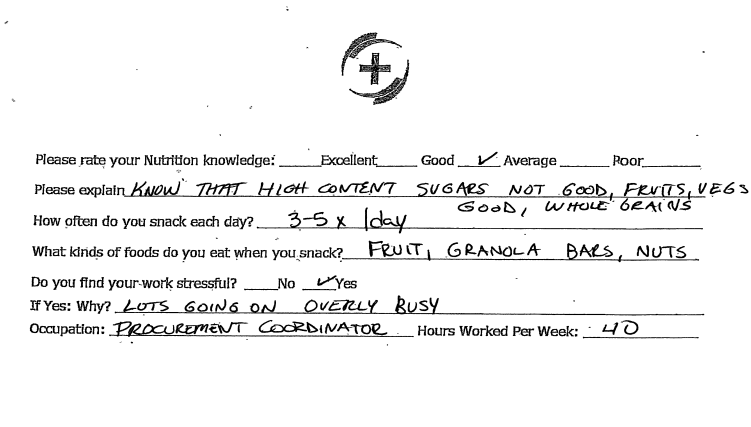 Please rate your Nutrition knowledge: _____Excellent_____ Good __✓_ Average _____ Poor_______
Please explain KNOW THAT HIGH CONTENT SUGARS NOT GOOD, FRUITS, VEGS
GOOD, WHOLE GRAINS
How often do you snack each day? 3-5 x /day
What kinds of foods do you eat when you snack? FRUIT, GRANOLA BARS, NUTS
Do you find your work stressful? ____No _✓_Yes
If Yes: Why? LOTS GOING ON OVERLY BUSY
Occupation: PROCUREMENT COORDINATOR Hours Worked Per Week: 40